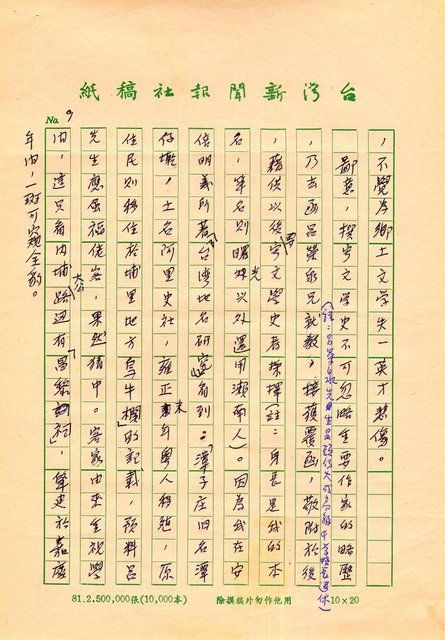 台灣新聞報社稿紙
No. 9
，不覺為鄉土文學失一英才悲傷。
鄙意，撰寫文學史不可忽略主要作家的略歷
，乃去函呂榮泉兄就教，接獲覆函，敬附於後
，藉供以後寫文學史者採擇（註：身長是我的本
名，筆名則曙光以外還用瀨南人）。因為我在安
倍明義所著「台灣地名研究」看到：「潭子庄旧名潭
仔墘，土名阿里史社，雍正末年粵人移墾，原
住民則移住於埔里地方烏牛欄」的記載，預料呂
先生應屬福佬客，果然猜中。客家由來重視學
問，這只看內埔公路邊有「昌黎祠」，肇建於嘉慶
年內，一斑可窺全豹。
81.2.500,000張(10,000本)
除撰稿外勿作他用
10×20